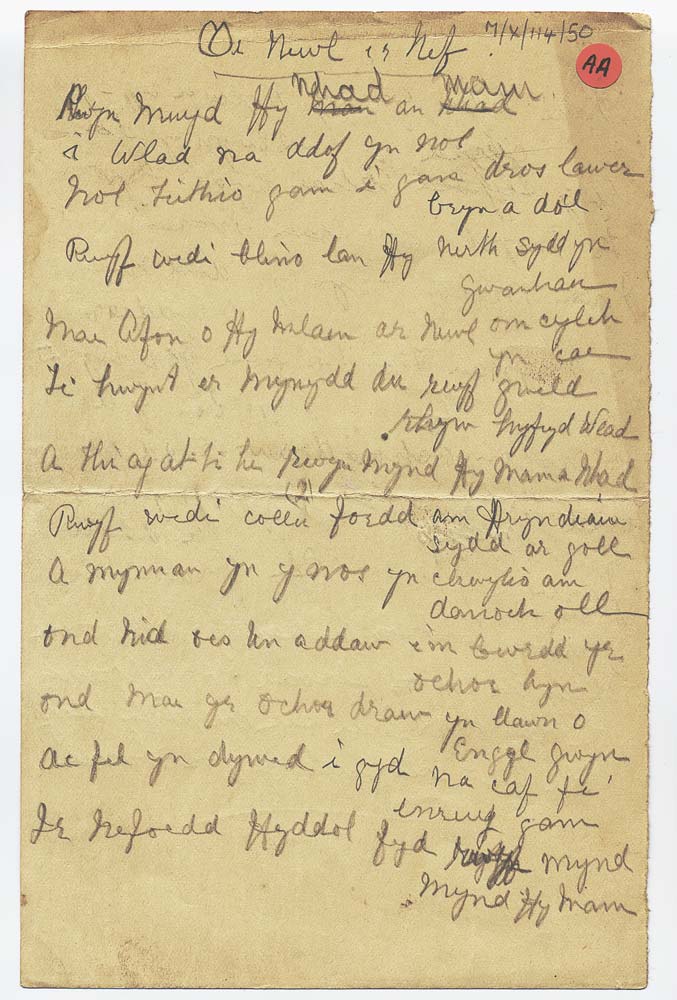 7/X/114/50
AA
O'r Niwl i'r Nef.
Nhad mam
Rwyn Mwyd Hy mam an Nhad
i Wlad na ddof yn nol
Nol Teithio gam i gam dros lawer
bryn a dôl.
Rwyf wedi blino lan Hy nerth sydd yn
gwanhau
Mae Afon o Hy Mlaen ar Niwl om cylch
yn cae
Ti hwynt er Mynydd du rwyf gweld
rhyw hyfryd Wlad
A thi ag at ti hi Rwyn Mynd Hy Mam a Nhad
(2)
Rwyf wedi collu foedd am Ffryndiau
sydd ar goll
A mynnan yn y nos yn chwylio am
danoch oll
ond Nid oes Un addaw i'm Cwrdd yr
ochor hyn
ond Mae yr ochor draw yn llawn o
Engyl gwyn
Ac fel yn dywed i gyd na caf fi
unrhyw gam
Ir Nefoedd Hyddol fyd rwyf mynd
Mynd Hy Mam